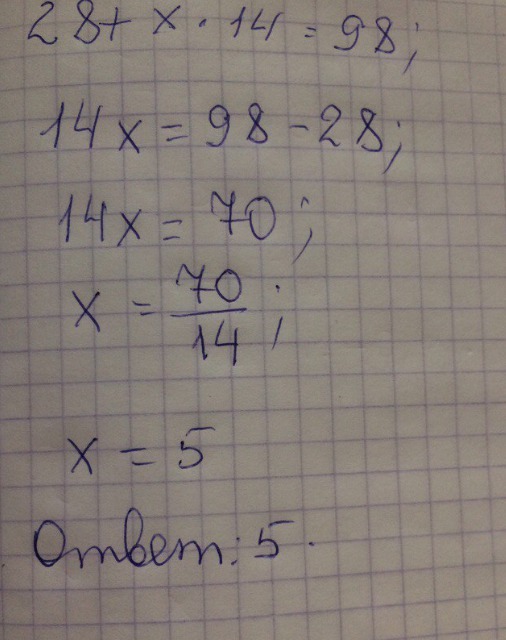 28+ x · 14 = 98;
14x = 98 - 28;
14x = 70;
x = 70/14;
x = 5
Ответ: 5.